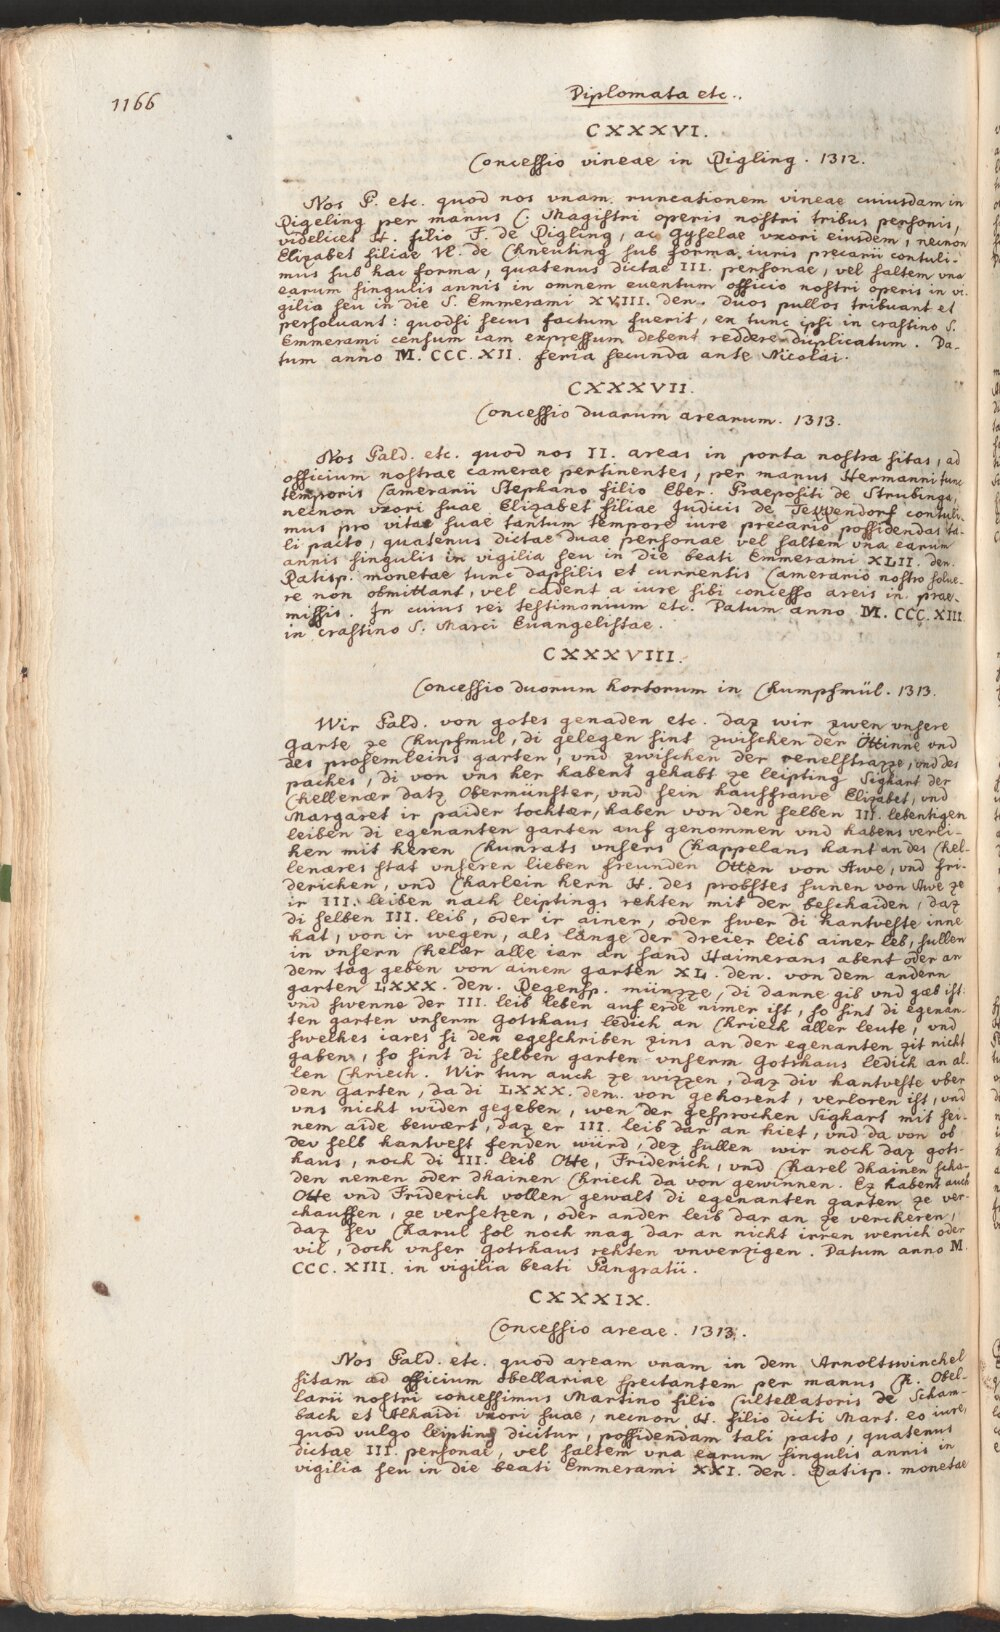 1166
Diplomata etc.
CXXXVI.
Concessio vineae in Rigling. 1312.
Nos P. etc. quod nos vnam runcationem vineae cuiusdam in
Rigeling per manus C. Magistri operis nostri tribus personis,
videlicet H. filio F. de Rigling, ac Gyselae vxori eiusdem, necnon
Elizabet filiae Vl. de Chneuting sub forma iuris precarii contuli-
mus sub hac forma, quatenus dictae III. personae, vel saltem vna
earum singulis annis in omnem euentum officio nostri operis in vi-
gilia seu in die S. Emmerami XVIII. den. duos pullos tribuant et
persoluant: quodsi secus factum fuerit, ex tunc ipsi in crastino S.
Emmerami censum iam expressum debent reddere duplicatum. Da-
tum anno M. CCC. XII. feria secunda ante Nicolai.
CXXXVII.
Concessio duarum arearum. 1313.
Nos Pald. etc. quod nos II. areas in porta nostra sitas, ad
officium nostrae camerae pertinentes, per manus Hermanni tunc
temporis Camerarii Stephano filio Eber. Praepositi de Strubinga,
necnon vxori suae Elizabet filiae Judicis de contuli-
mus pro vitae suae tantum tempore iure precario possidendas ta-
li pacto, quatenus dictae duae personae vel saltem vna earum
annis singulis in vigilia seu in die beati Emmerami XLII. den.
Ratisp. monetae tunc dapsilis et currentis Camerario nostro solue-
re non obmittant, vel cadent a iure sibi concesso areis in prae-
missis. In cuius rei testimonium etc. Datum anno M. CCC. XIII
in crastino S. Marci Euangelistae.
CXXXVIII.
Concessio duorum hortorum in Chumpfmül. 1313.
Wir Pald. von gotes genaden etc. daz wir zwen vnsere
garte ze Chupfmul, di gelegen sint zwischen der Öttinne vnd
des prosemleins garten, vnd zwischen der renelstrazze, vnd des
paches, di von vns her habent gehabt ze leipting Sighart der
Chellenær datz Obermünster, vnd sein hausfrawe Elizabet, vnd
Margaret ir paider tochter, haben von den selben III. lebentigen
leiben di egenanten garten auf genommen vnd habens verli-
hen mit heren Chunrats vnsers Chappelans hant an des Chel-
lenæres stat vnseren lieben freunden Otten von Awe, vnd Fri-
derichen, vnd Charlein hern H. des probstes sunen von Awe ze
ir III. leiben nach leiptings rehten mit der beschaiden, daz
di selben III. leib, oder ir ainer, oder swer di hantveste inne
hat, von ir wegen, als lange der dreier leib ainer leb, sullen
in vnsern Chelær alle iar an sand Haimerans abent oder an
dem tag geben von ainem garten XL. den. von dem andern
garten LXXX. den. Regensp. münzze, di danne gib vnd gæb ist.
vnd swenne der III. leib leben auf erde nimer ist, so sint di egenan-
ten garten vnserm Gotshaus ledich an Chriech aller leute, vnd
swelhes iares si den egeschriben zins an der egenanten zit nicht
gaben, so sint di selben garten vnserm Gotshaus ledich an al-
len Chriech. Wir tun auch ze wizzen, daz div hantveste vber
den garten, da di LXXX. den. von gehorent, verloren ist, vnd
vns nicht wider gegeben, wen der gesprochen Sighart mit sei-
nem aide bewært, daz er III. leib dar an hiet, vnd da von ob
dev selb hantvest fenden würd, dez sullen wir noch daz gots-
haus, noch di III. leib Otte, Friderich, vnd Charel dhainen scha-
den nemen oder dhainen Chriech da von gewinnen. Ez habent auch
Otte vnd Friderich vollen gewalt di egenanten garten ze ver-
chauffen, ze versetzen, oder ander leib dar an ze vercheren,
daz sev Charul sol noch mag dar an nicht irren wenich oder
vil, doch vnser gotshaus rehten vnverzigen. Datum anno M.
CCC. XIII. in vigilia beati Pangratii.
CXXXIX.
Concessio areae. 1313.
Nos Pald. etc. quod aream vnam in dem Arnoltswinchel
sitam ad officium obellariae spectantem per manus R. Obel-
larii nostri concessimus Martino filio Cultellatoris de Scham-
bach et Alhaidi vxori suae, necnon H. filio dicti Mart. eo iure,
quod vulgo leipting dicitur, possidendam tali pacto, quatenus
dictae III. personae, vel saltem vna earum singulis annis in
vigilia seu in die beati Emmerami XXI. den. Ratisp. monetae